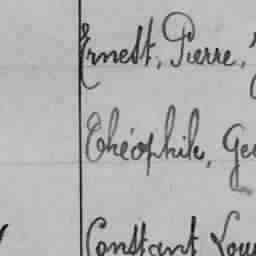 Ernest, Pierre,
Théophile,
Constant